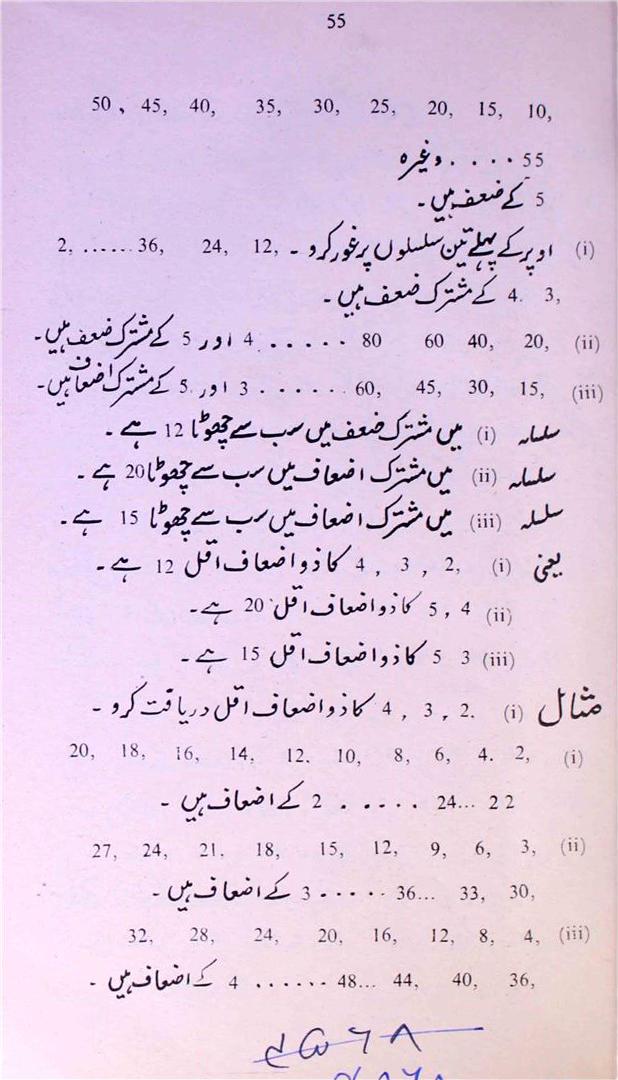 55
10, 15, 20, 25, 30, 35, 40, 45, 50,
55 ..... وغیرہ
5 کے ضعف ہیں۔
(i) اوپر کے پہلے تین سلسلوں پر غور کرو۔ 12, 24, 36, ...... 2,
3, 4. کے مشترک ضعف ہیں۔
(ii) 20, 40, 60 80 ...... 4 اور 5 کے مشترک ضعف ہیں۔
(iii) 15, 30, 45, 60, ....... 3 اور 5 کے مشترک اضعاف ہیں۔
سلسلہ (i) میں مشترک ضعف میں سب سے چھوٹا 12 ہے۔
سلسلہ (ii) میں مشترک اضعاف میں سب سے چھوٹا 20 ہے۔
سلسلہ (iii) میں مشترک اضعاف میں سب سے چھوٹا 15 ہے۔
یعنی (i) 2, 3, 4 کا ذو اضعاف اقل 12 ہے۔
(ii) 4, 5 کا ذو اضعاف اقل 20 ہے۔
(iii) 3 5 کا ذو اضعاف اقل 15 ہے۔
مثال (i) 2. 3, 4, کا ذو اضعاف اقل دریافت کرو۔
(i) 2, 4. 6, 8, 10, 12. 14, 16, 18, 20,
22 24... ..... 2 کے اضعاف ہیں۔
(ii) 3, 6, 9, 12, 15, 18, 21, 24, 27,
30, 33, 36... ..... 3 کے اضعاف ہیں۔
(iii) 4, 8, 12, 16, 20, 24, 28, 32,
36, 40, 44, 48... ...... 4 کے اضعاف ہیں۔